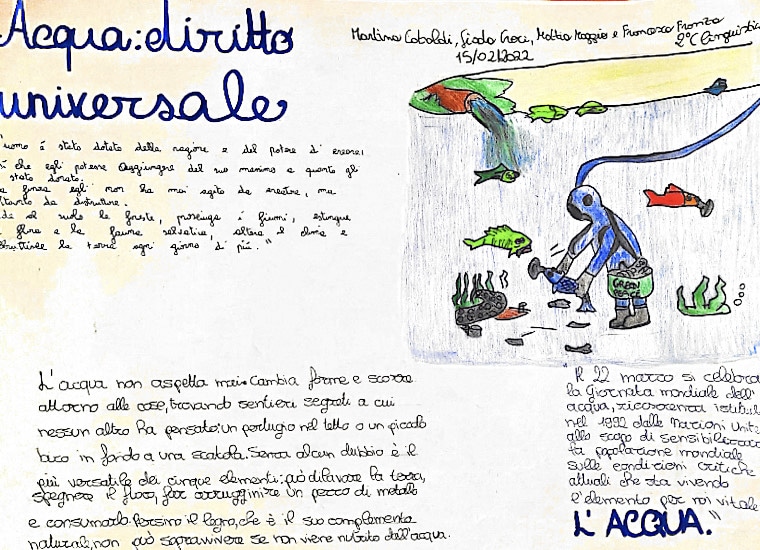 Acqua: diritto
universale
Martina Caboldi, Giada Croci, Mattia Maggio e Francesca Fronza
2°C linguistico
15/02/2022
"uomo é stato dotato della ragione e del potere di creare,
che egli potesse aggiungere del suo meximo a quanto gli
stato donato.
finora egli non ha mai agito da creatore, ma
soltanto da distruttore.
al suolo le foreste, prosciuga i fiumi, estingue
flora e la fauna selvatica, altera il clima e
abbruttisce la terra ogni giorno di piú."
GREEN
PEACE
L'acqua non aspetta mai. Cambia forme e scorre
attorno alle cose, trovando sentieri segreti a cui
nessun altro ha pensato: un pertugio nel tetto o un piccolo
buco in fondo a una scatola. Senza alcun dubbio è il
più versatile dei cinque elementi: può dilavare la terra,
spegnere il fuoco, far arrugginire un pezzo di metallo
e consumarlo. Persino il legno, che è il suo complemento
naturale, non può sopravvivere se non viene nutrito dall'acqua.
"Il 22 marzo si celebra
la Giornata mondiale dell'
acqua, ricorrenza istituita
nel 1992 dalle Nazioni Unite
allo scopo di sensibilizzare
la popolazione mondiale
sulle condizioni critiche
attuali che sta vivendo
l'elemento per noi vitale:
L'ACQUA."